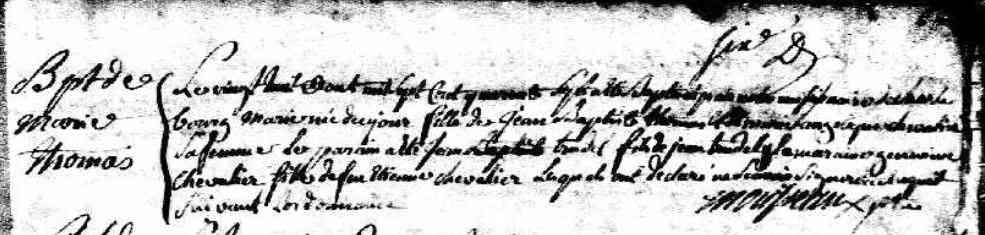 Bpt de
Marie
Thomas
Le vingt huit d'aout mil sept cent quarante sept a été baptisée par nous missionnaire de charle
bourg Marie née du jour fille de Jean Baptiste Thomas et de Chevalier
sa femme le parain a été Jean Baptiste trudel fils de jean trudel la maraine genevieve
Chevalier fille de feu Etienne chevalier lesquels ont declaré ne scavoir signer de ce requit
Suivant Lordonnance
ptre